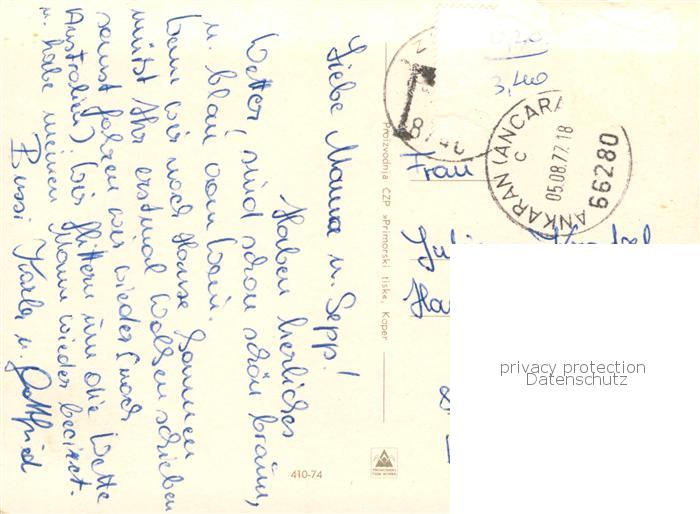 Liebe Mama u. Sepp!
Haben herrliches
Wetter, sind schon schön braun,
u. blau vom Wein.
Wenn wir nach Hause kommen
müßt Ihr erstmal Wolken schieben
sonst fahren wir wieder (nach
Australien) Wir flittern um die Wette
u. habe meinen Mann wieder becirct.
Bussi Karla u. Gottfried
Proizvodnja ČZP »Primorski tisk«, Koper
410-74
3,40
8740
ANKARAN ANCARA
C
05.08.77.18
66280
Frau
privacy protection
Datenschutz